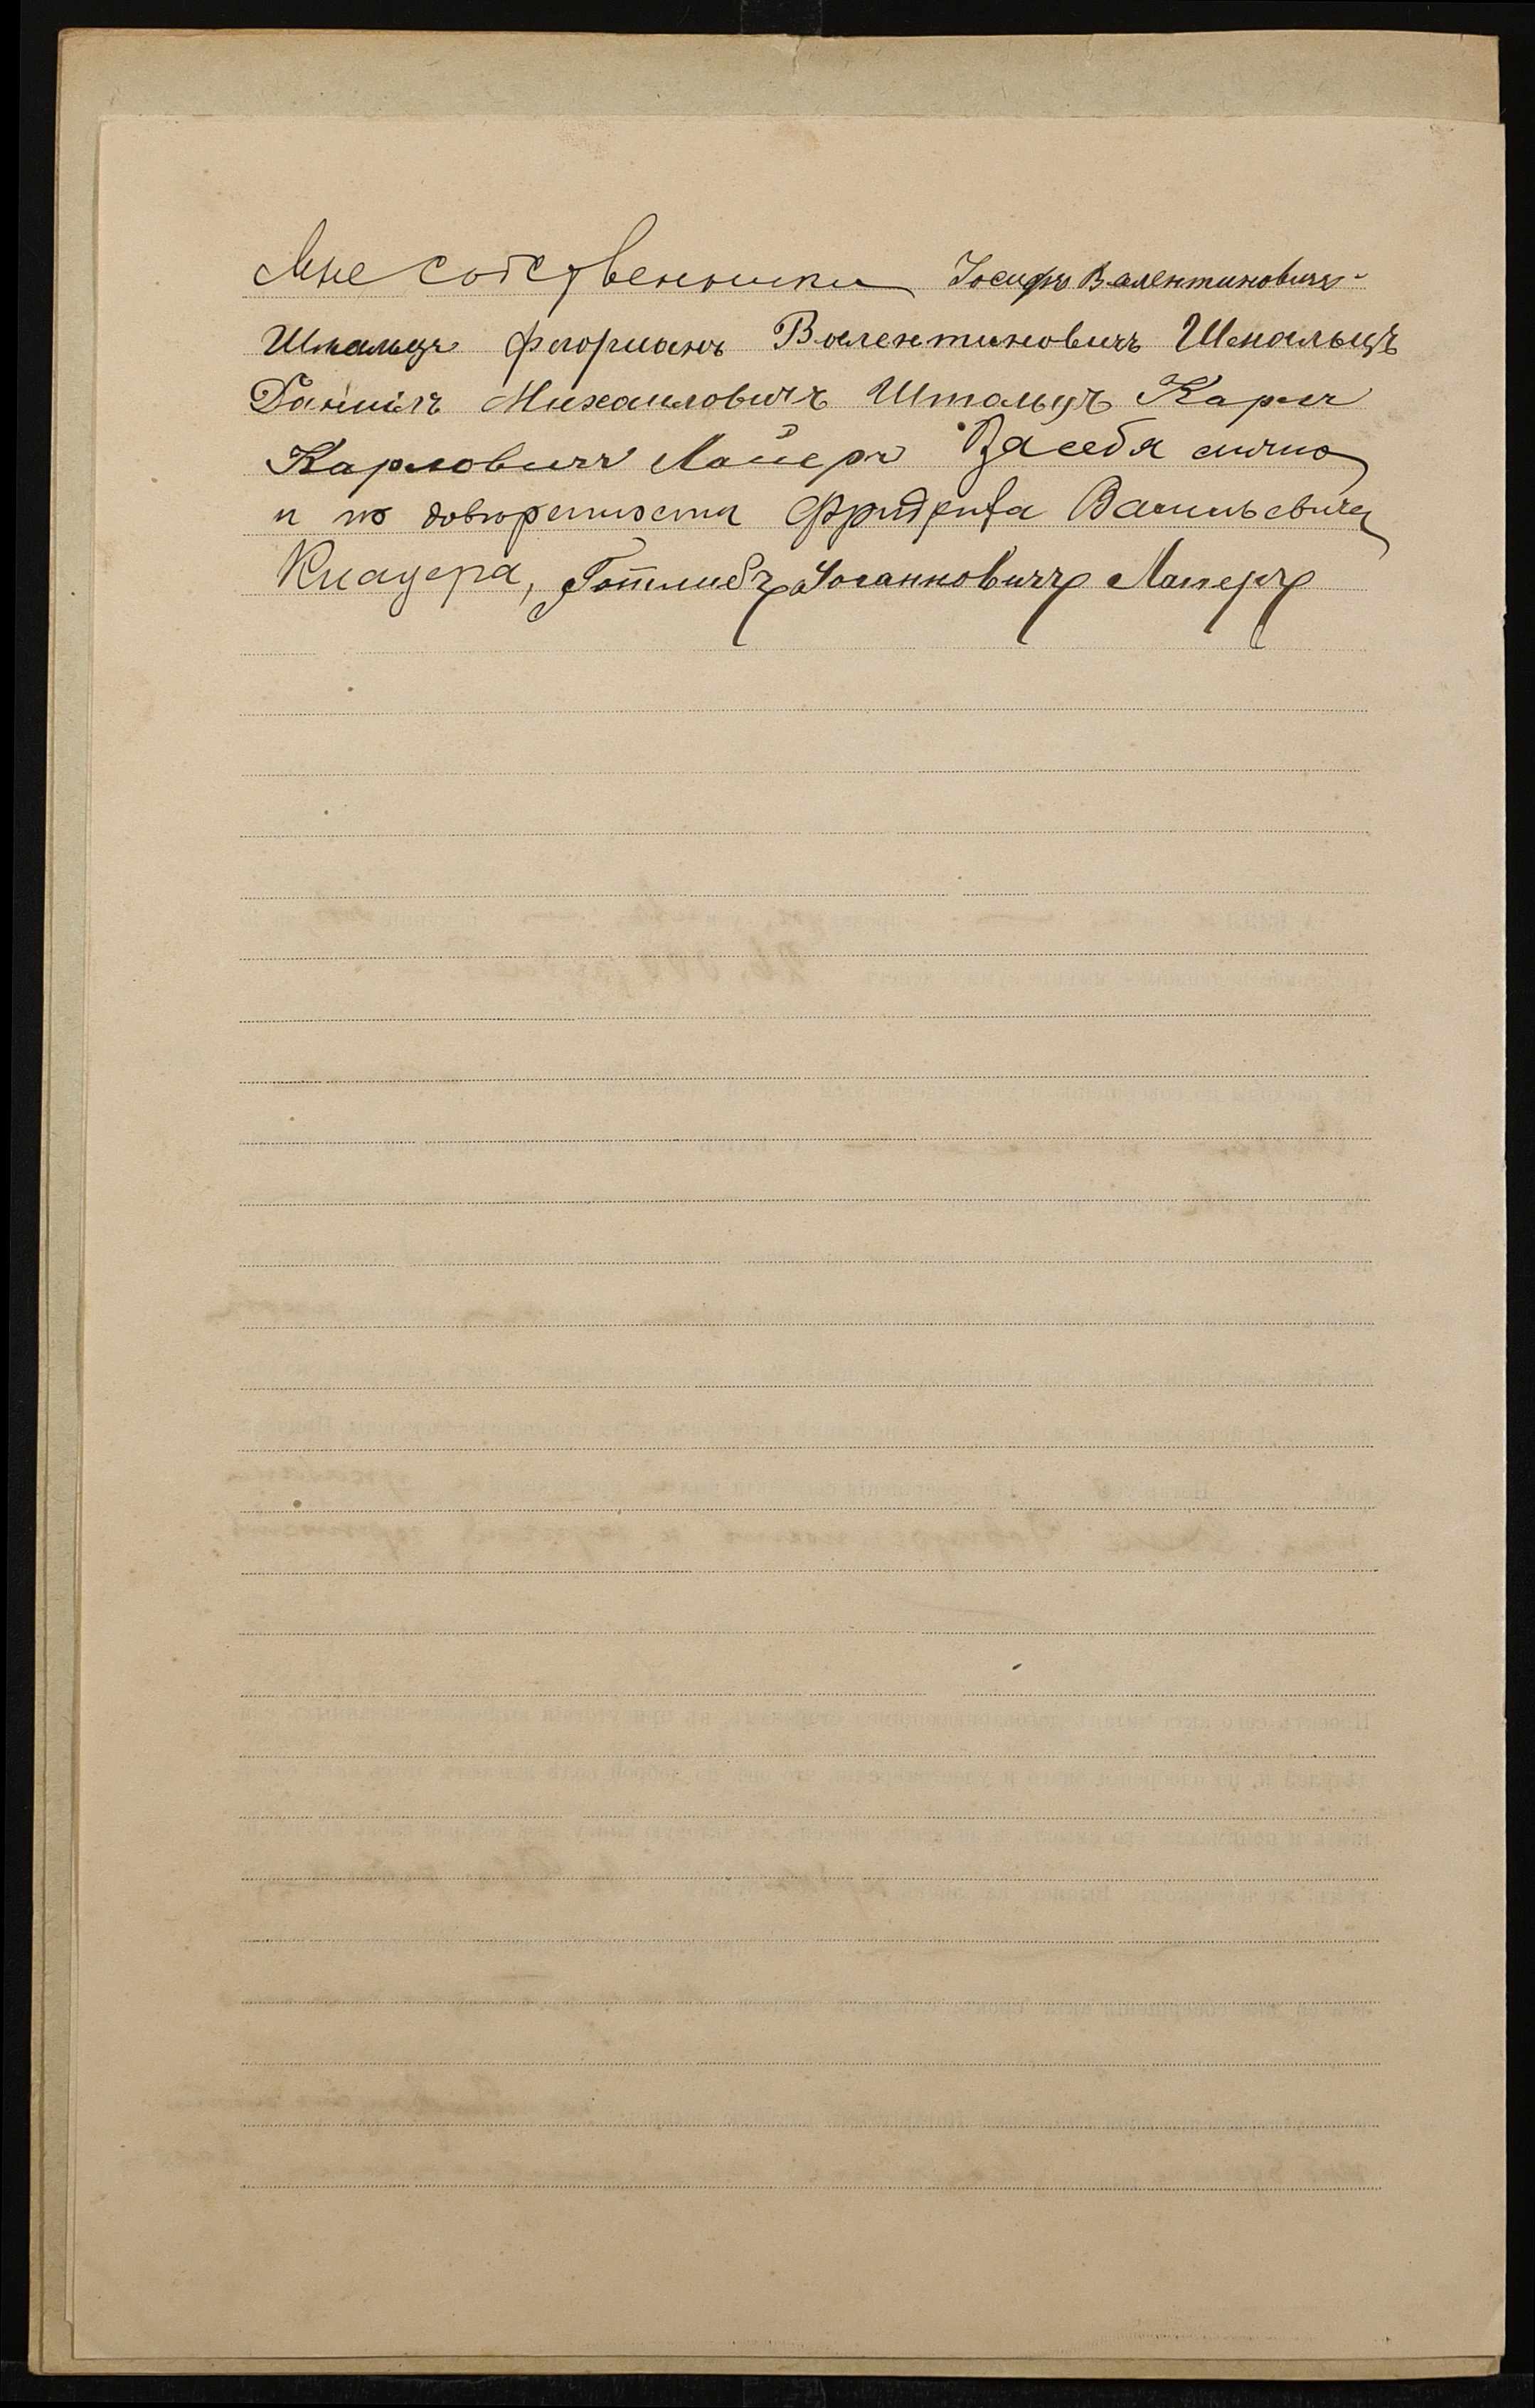 Мне собственники Іосифъ Валентиновичъ
Шмальцъ Флоріанъ Валентиновичъ Шмальцъ
Даніилъ Михаиловичъ Штальцъ Карлъ
Карловичъ Майеръ За себя лично
и по довѣренности Фридриха Васильевича
Кнауера, Готлибъ Іоганновичъ Майеръ